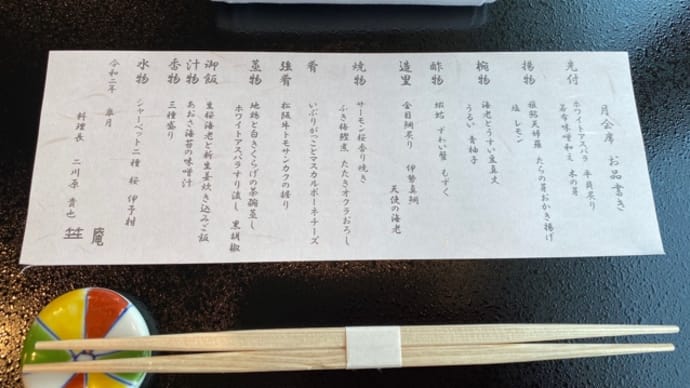 月会席 お品書き
先付
ホワイトアスパラ 平貝炙り
昆布味噌和え 木の芽
揚物
稚鮎天婦羅 たらの芽おかき揚げ
塩 レモン
椀物
海老とうすい豆真丈
うるい 青柚子
酢物
蝦蛄 ずわい蟹 もずく
造里
金目鯛炙り 伊勢真鯛
天使の海老
焼物
サーモン桜香り焼き
ふき梅鰹煮 たたきオクラおろし
肴
いぶりがっことマスカルポーネチーズ
強肴
松阪牛トモサンカクの握り
蒸物
地鶏と白きくらげの茶碗蒸し
ホワイトアスパラすり流し 黒胡椒
御飯
生桜海老と新生姜炊き込みご飯
汁物
あおさ海苔の味噌汁
香物
三種盛り
水物
シャーベット二種 桜 伊予柑
令和二年 皐月
料理長 二川原 貴也
庵